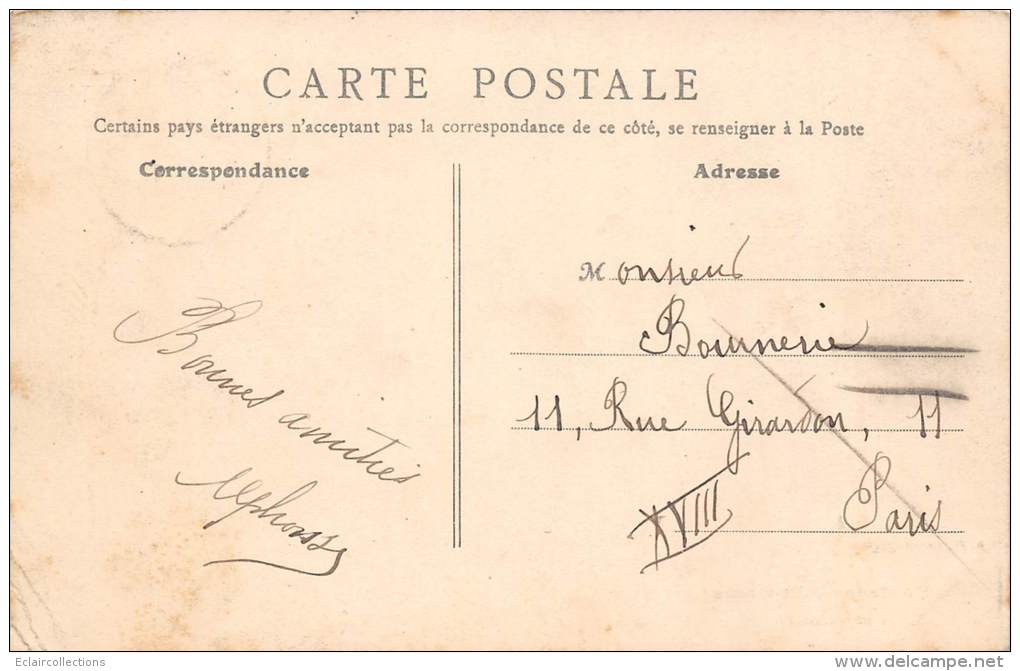 CARTE POSTALE
Certains pays étrangers n'acceptant pas la correspondance de ce côté, se renseigner à la Poste
Correspondance
Adresse
Bonnes amitiés
Alphonse
Monsieur
Bournerie
11, Rue Girardon, 11
Paris
XVIII
Eclaircollections
delcampe.net